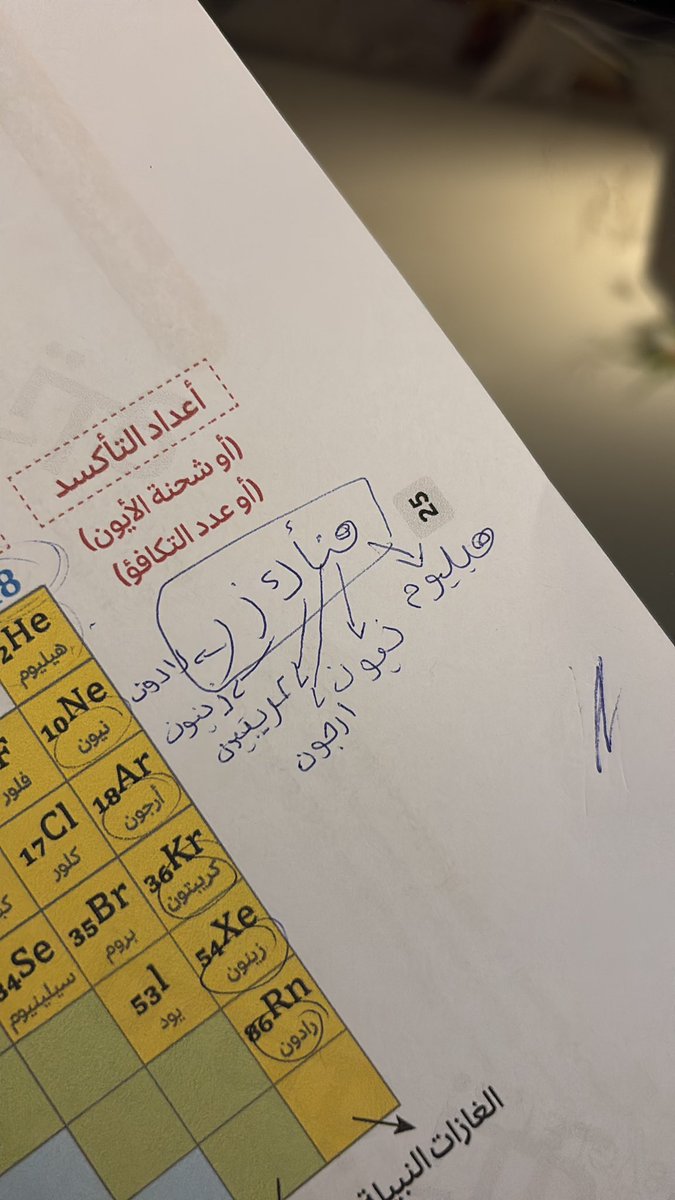 أعداد التأكسد
(أو شحنة الأيون)
(أو عدد التكافؤ)
25
هنأك زر
هيليوم
نيون
أرجون
كريبتون
زينون
رادون
8
2He
هيليوم
10Ne
نيون
F
فلور
18Ar
أرجون
17Cl
كلور
36Kr
كريبتون
35Br
بروم
34Se
سيلينيوم
54Xe
زينون
53I
يود
86Rn
رادون
الغازات النبيلة